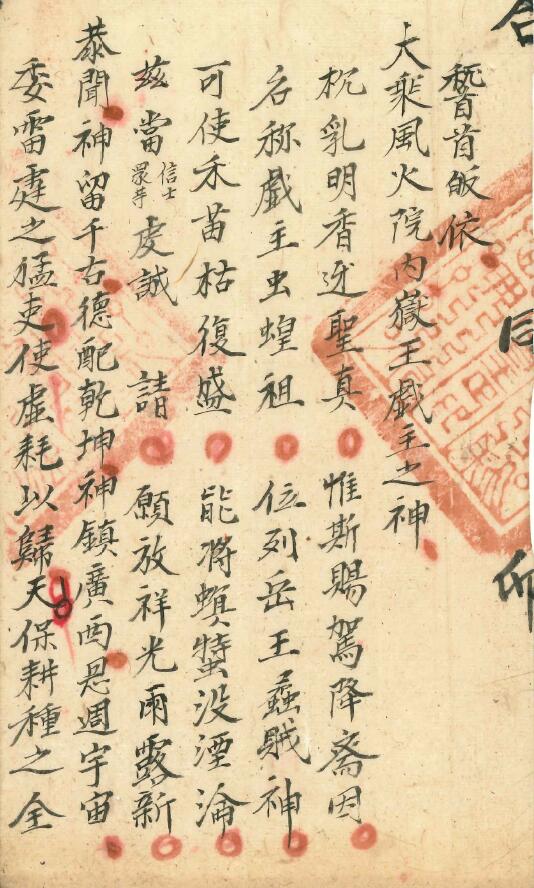 合同
稽首皈依
大乘風火院内嶽王戲主之神
杌乳明香迓聖真　惟斯賜駕降齋因
名称戲主虫蝗祖　位列岳王蟊賊神
可使禾苗枯復盛　能將螟螣没湮淪
兹當信士眾等虔誠請　願放祥光雨露新
恭聞神留千古德配乾坤神鎮廣西恩週宇宙
委雷霆之猛吏使虛耗以歸天保耕種之全